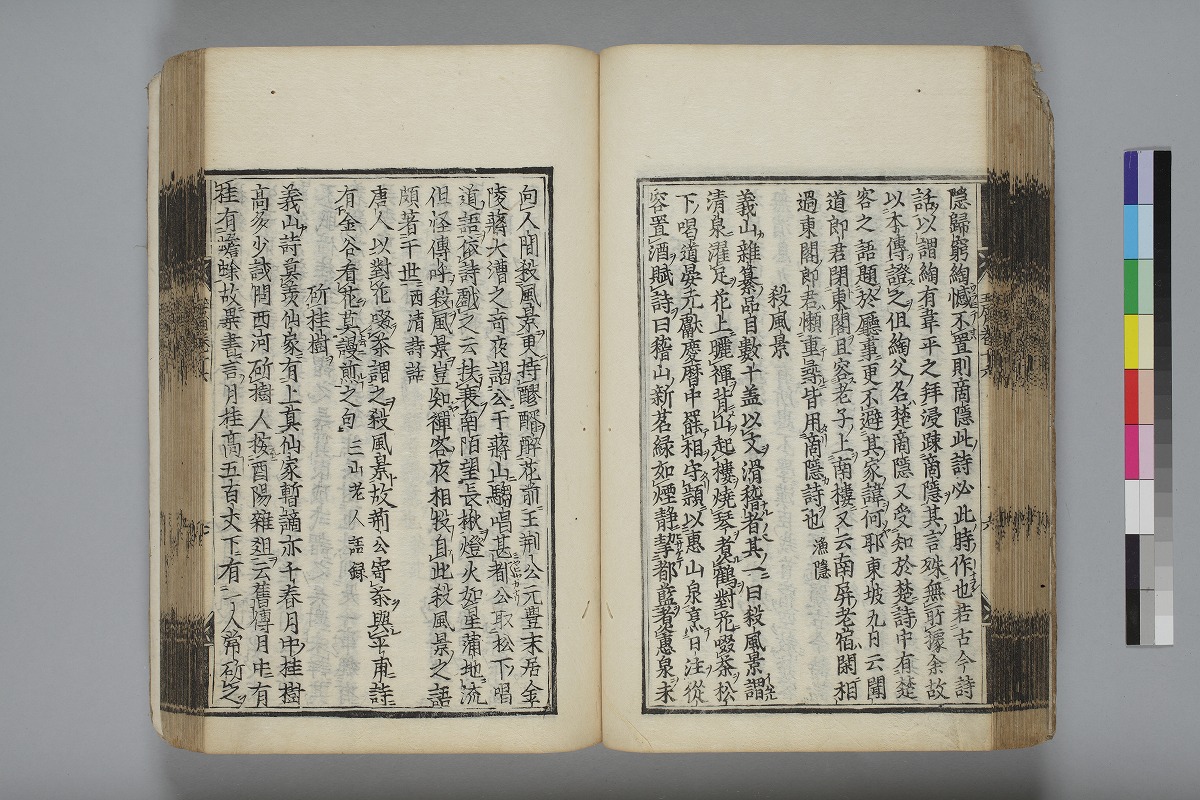 隱歸窮綯憾不置則商隱此詩必此時作也若古今詩
話以謂綯有韋平之拜浸踈商隱其言殊無所據余故
以本傳證之但綯父名楚商隱又受知於楚詩中有楚
客之語題於廳事更不避其家諱何耶東坡九日云聞
道郎君閉東閣且容老子上南樓又云南屏老宿閑相
過東閣郎君懶重尋皆用商隱詩也 漁隱
殺風景
義山雜纂品目數十盖以文滑稽者其一曰殺風景謂
清泉濯足花上曬褌背山起樓燒琴煑鶴對花啜茶松
下喝道晏元獻慶曆中罷相守潁以惠山泉烹日注從
容置酒賦詩曰稽山新茗緑如煙静挈都藍煑惠泉未
向人間殺風景更持醪醑醉花前王荆公元豊末居金
陵蔣大漕之竒夜謁公于蔣山騶唱甚都公取松下唱
道語依詩戯之云扶衰南陌望長楸燈火如星蒲地流
但怪傳呼殺風景豈知禪客夜相投自此殺風景之語
頗著于世 西清詩話
唐人以對花啜茶謂之殺風景故荆公寄茶與平甫詩
有金谷看花莫謾煎之句 三山老人語録
斫桂樹
義山詩莫羨仙家有上真仙家暫謫亦千春月中桂樹
高多少試問西河斫樹人按酉陽雜俎云舊傳月中有
桂有蟾蜍故異書言月桂高五百丈下有一人常斫之